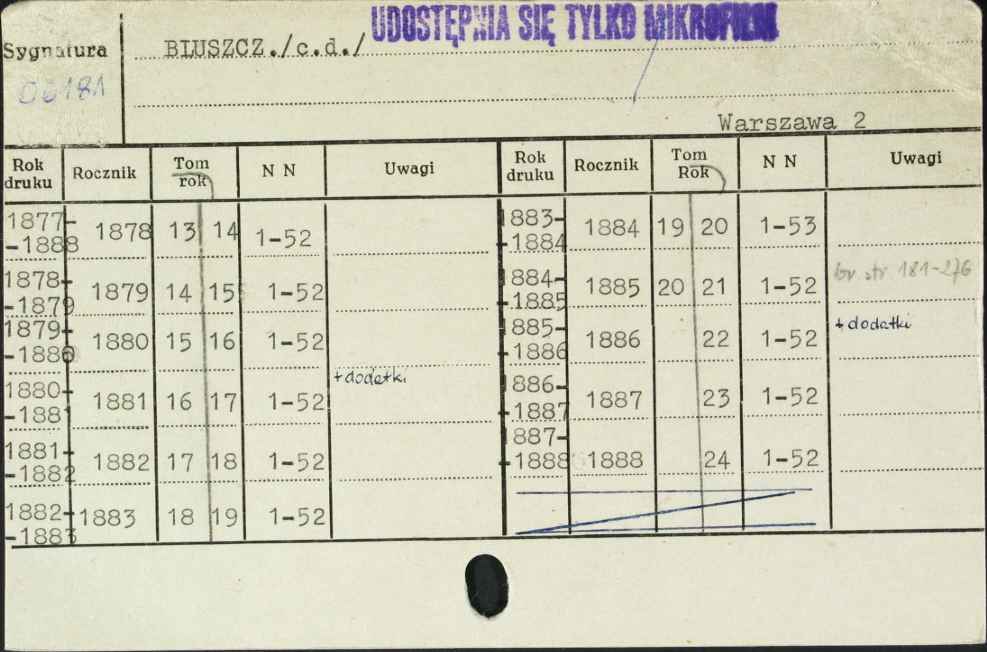 UDOSTĘPNIA SIĘ TYLKO MIKROFILM
Sygnatura BLUSZCZ./c.d./
06181
Warszawa 2
Rok druku Rocznik Tom rok N N Uwagi Rok druku Rocznik Tom Rok N N Uwagi
1877-
-1888 1878 13 14 1-52
1878-
-1879 1879 14 15 1-52
1879-
-1880 1880 15 16 1-52
+dodatki
1880-
-1881 1881 16 17 1-52
1881-
-1882 1882 17 18 1-52
1882-
-1883 1883 18 19 1-52
883-
-1884 1884 19 20 1-53
884-
-1885 1885 20 21 1-52 br str. 181-276
885-
-1886 1886 22 1-52 + dodatki
886-
-1887 1887 23 1-52
887-
-1888 1888 24 1-52